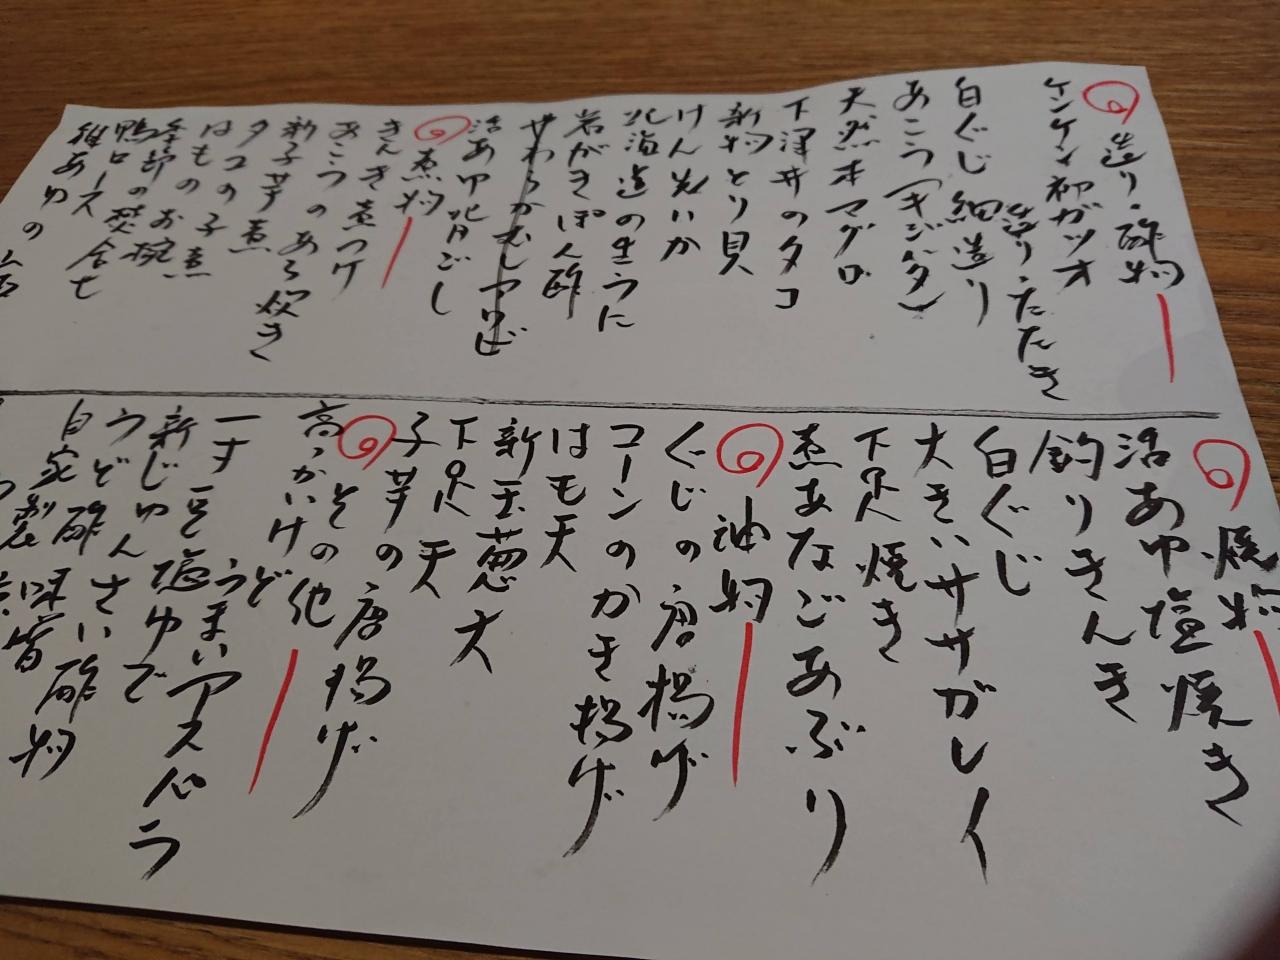 造り・酢物
ケンケン初ガツオ
造り・たたき
白ぐじ 細造り
あこう(キジハタ)
天然本マグロ
下津井のタコ
新物とり貝
けん先いか
北海道の生うに
岩がきぽん酢
活あゆ背ごし
煮物
きんき煮つけ
あこうのあら炊き
新子芋煮
タコの子煮
はものお椀
鴨ロース
稚あゆの
焼物
活あゆ塩焼き
釣りきんき
白ぐじ
大きいササガレイ
下足焼き
煮あなごあぶり
油物
ぐじの唐揚げ
コーンのかき揚げ
はも天
新玉葱天
下足天
子芋の唐揚げ
その他
うまいアスパラ
一寸豆塩ゆで
新じゅんさい酢物
うど酢味噌
自家製